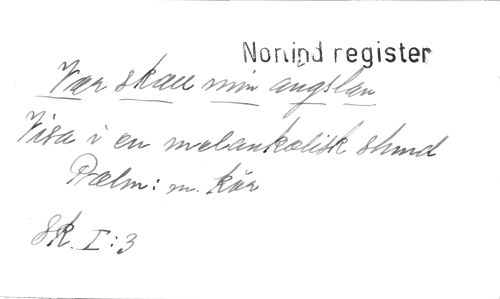 Nomind register
Var skall min ängslan
Visa i en melankolisk stund
Psalm: m. kör
SK. I:3